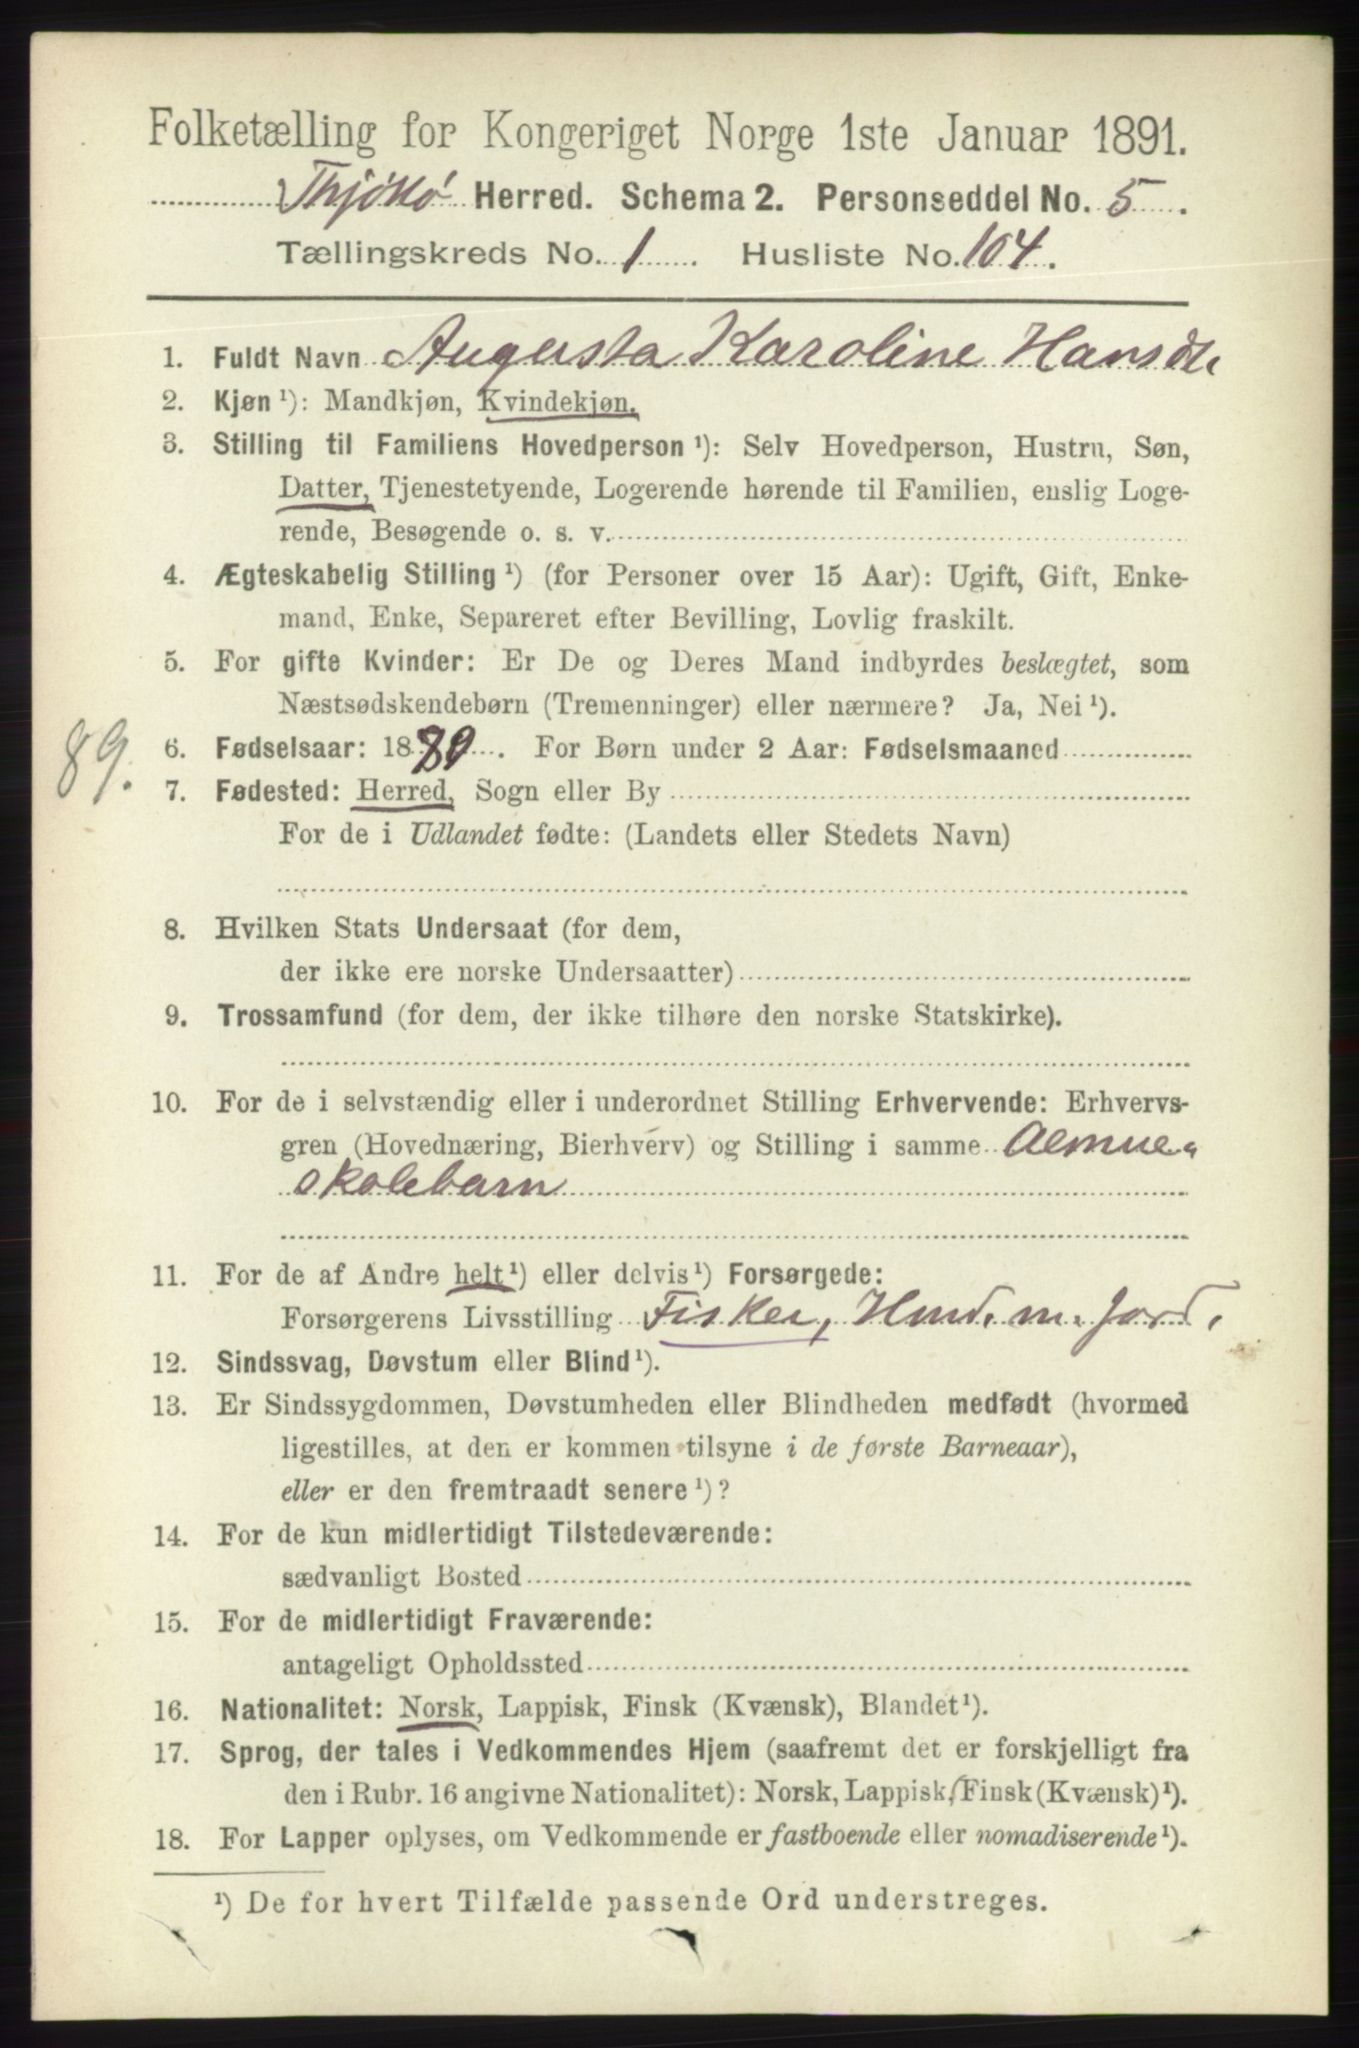 Folketælling for Kongeriget Norge 1ste Januar 1891.
Thjøttø Herred. Schema 2. Personseddel No. 5.
Tællingskreds No. 1. Husliste No. 104.
1. Fuldt Navn Augusta Karoline Hansdt.
2. Kjøn ¹): Mandkjøn, Kvindekjøn.
3. Stilling til Familiens Hovedperson ¹): Selv Hovedperson, Hustru, Søn,
Datter, Tjenestetyende, Logerende hørende til Familien, enslig Loge-
rende, Besøgende o. s. v.
4. Ægteskabelig Stilling ¹) (for Personer over 15 Aar): Ugift, Gift, Enke-
mand, Enke, Separeret efter Bevilling, Lovlig fraskilt.
5. For gifte Kvinder: Er De og Deres Mand indbyrdes beslægtet, som
Næstsødskendebørn (Tremenninger) eller nærmere? Ja, Nei ¹).
89.
6. Fødselsaar: 1880. For Børn under 2 Aar: Fødselsmaaned
7. Fødested: Herred, Sogn eller By
For de i Udlandet fødte: (Landets eller Stedets Navn)
8. Hvilken Stats Undersaat (for dem,
der ikke ere norske Undersaatter)
9. Trossamfund (for dem, der ikke tilhøre den norske Statskirke).
10. For de i selvstændig eller i underordnet Stilling Erhvervende: Erhvervs-
gren (Hovednæring, Bierhverv) og Stilling i samme Almue-
skolebarn
11. For de af Andre helt ¹) eller delvis ¹) Forsørgede:
Forsørgerens Livsstilling Fisker, Husm. m. Jord.
12. Sindssvag, Døvstum eller Blind ¹).
13. Er Sindssygdommen, Døvstumheden eller Blindheden medfødt (hvormed
ligestilles, at den er kommen tilsyne i de første Barneaar),
eller er den fremtraadt senere ¹)?
14. For de kun midlertidigt Tilstedeværende:
sædvanligt Bosted
15. For de midlertidigt Fraværende:
antageligt Opholdssted
16. Nationalitet: Norsk, Lappisk, Finsk (Kvænsk), Blandet ¹).
17. Sprog, der tales i Vedkommendes Hjem (saafremt det er forskjelligt fra
den i Rubr. 16 angivne Nationalitet): Norsk, Lappisk, Finsk (Kvænsk) ¹).
18. For Lapper oplyses, om Vedkommende er fastboende eller nomadiserende ¹).
¹) De for hvert Tilfælde passende Ord understreges.